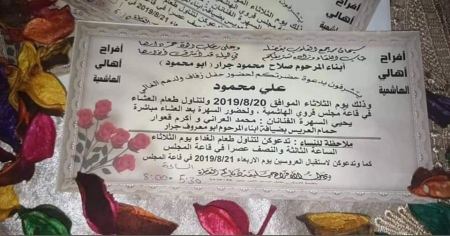 أفراح
أهالي
الهاشمية
أفراح
أهالي
الهاشمية
أبناء المرحوم صلاح محمود جرار (ابو محمود)
يتشرفون بدعوة حضرتكم لحضور حفل زفاف ولدهم الغالي
علي محمود
وذلك يوم الثلاثاء الموافق 2019/8/20 ولتناول طعام العشاء
في قاعة مجلس قروي الهاشمية ، ولحضور السهرة بعد العشاء مباشرة
يحيي السهرة الفنانان : محمد العراني و أكرم قعوار
حمام العريس بضيافة ابناء المرحوم ابو معروف جرار
ملاحظة للنساء : تدعوكن لتناول طعام الغداء يوم الثلاثاء
الساعة الثالثة والنصف عصراً في قاعة المجلس
كما وتدعوكن لاستقبال العروسين يوم الاربعاء 2019/8/21 في قاعة المجلس
8:00 - 5:30